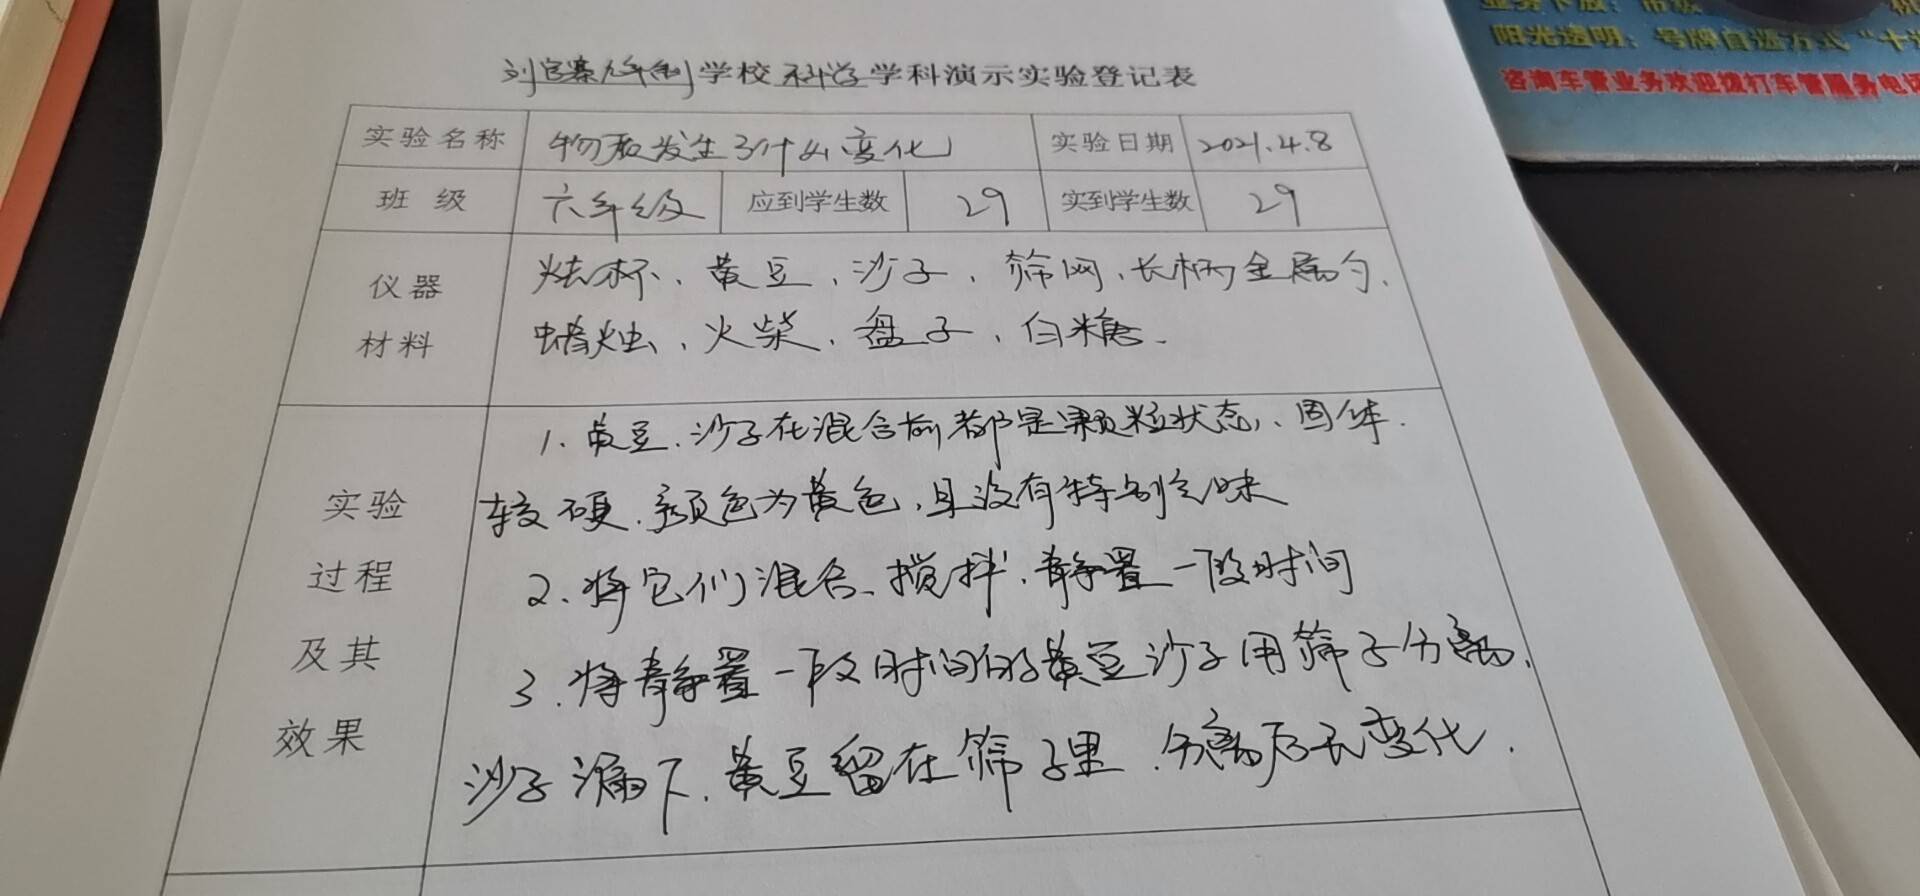 刘官寨九年制学校科学学科演示实验登记表
实验名称 物质发生了什么变化 实验日期 2021.4.8
班 级 六年级 应到学生数 29 实到学生数 29
仪器
材料
烧杯、黄豆、沙子、筛网、长柄金属勺、
蜡烛、火柴、盘子、白糖.
实验
过程
及其
效果
1、黄豆、沙子在混合前都是颗粒状态、固体.
较硬.颜色为黄色,且没有特别气味
2、将它们混合、搅拌、静置一段时间
3.将静置一段时间的黄豆沙子用筛子分离,
沙子漏下.黄豆留在筛子里.分离后无变化.
阳光透明:号牌自选方式“十
咨询车管业务欢迎拨打车管服务电话